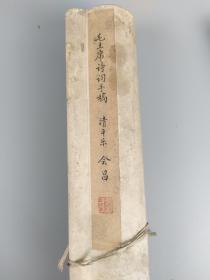 毛主席诗词手稿 清平乐 会昌